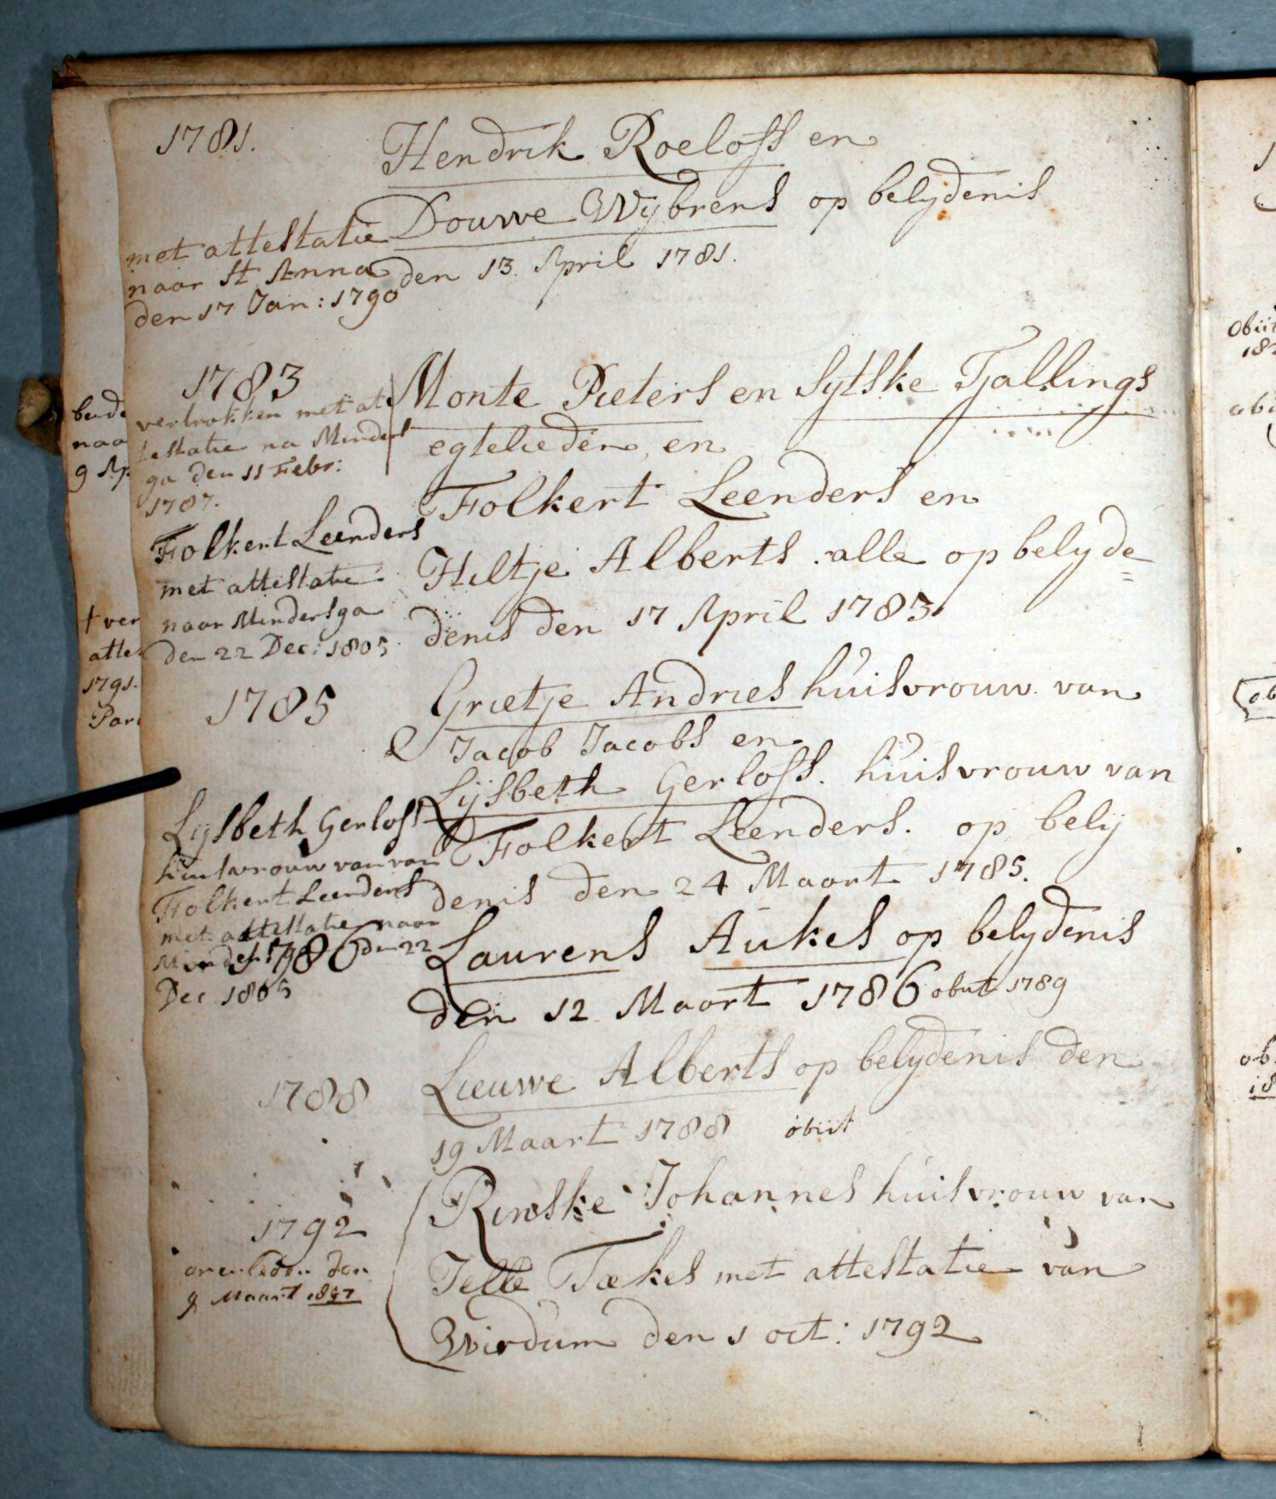 1781.
Hendrik Roeloffs en
Douwe Wybrens op belydenis
den 13. April 1781.
met attestatie
naar St Anna
den 17 Jan: 1790
1783
Monte Pieters en Sytske Tjallings
egtelieden, en
Folkert Leenders en
Hiltje Alberts. alle op belyde=
denis den 17 April 1783.
vertrokken met at
testatie na Minders
ga den 11 Febr:
1787.
Folkert Leenders
met attestatie
naar Mindersga
den 22 Dec: 1805
1785
Grietje Andries huisvrouw van
Jacob Jacobs en
Lijsbeth Gerloffs. huisvrouw van
Folkert Leenders. op belij
denis den 24 Maart 1785.
Lijsbeth Gerloffs
huisvrouw van van
Folkert Leenders
met attestatie naar
den 22
Dec 1805
1786
Laurens Aukes op belydenis
den 12 Maart 1786 obiit 1789
1788
Lieuwe Alberts op belydenis den
19 Maart 1788 obiit
1792
Rinske Johannes huisvrouw van
Jelle Tækes met attestatie van
Wirdum den 1 oct: 1792
overleden den
Maart
bede
naa
9 Ap
+ ver
attes
1791.
Par
obiit
obi
ob
ob
18